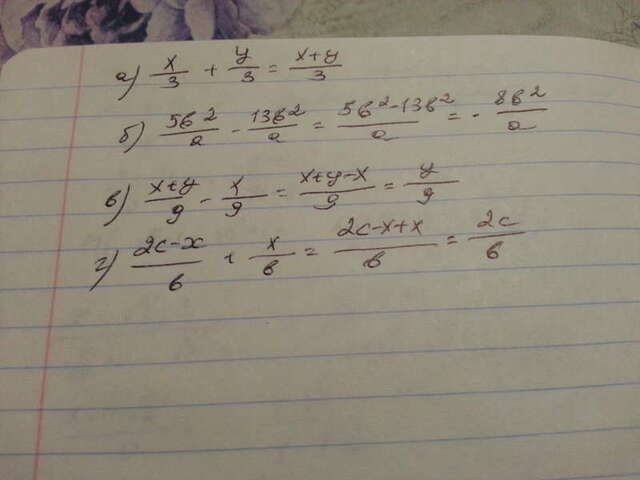 а) x/3 + y/3 = x+y/3
б) 5в²/a - 13в²/a = 5в²-13в²/a = - 8в²/a
в) x+y/9 - x/9 = x+y-x/9 = y/9
г) 2c-x/в + x/в = 2c-x+x/в = 2c/в